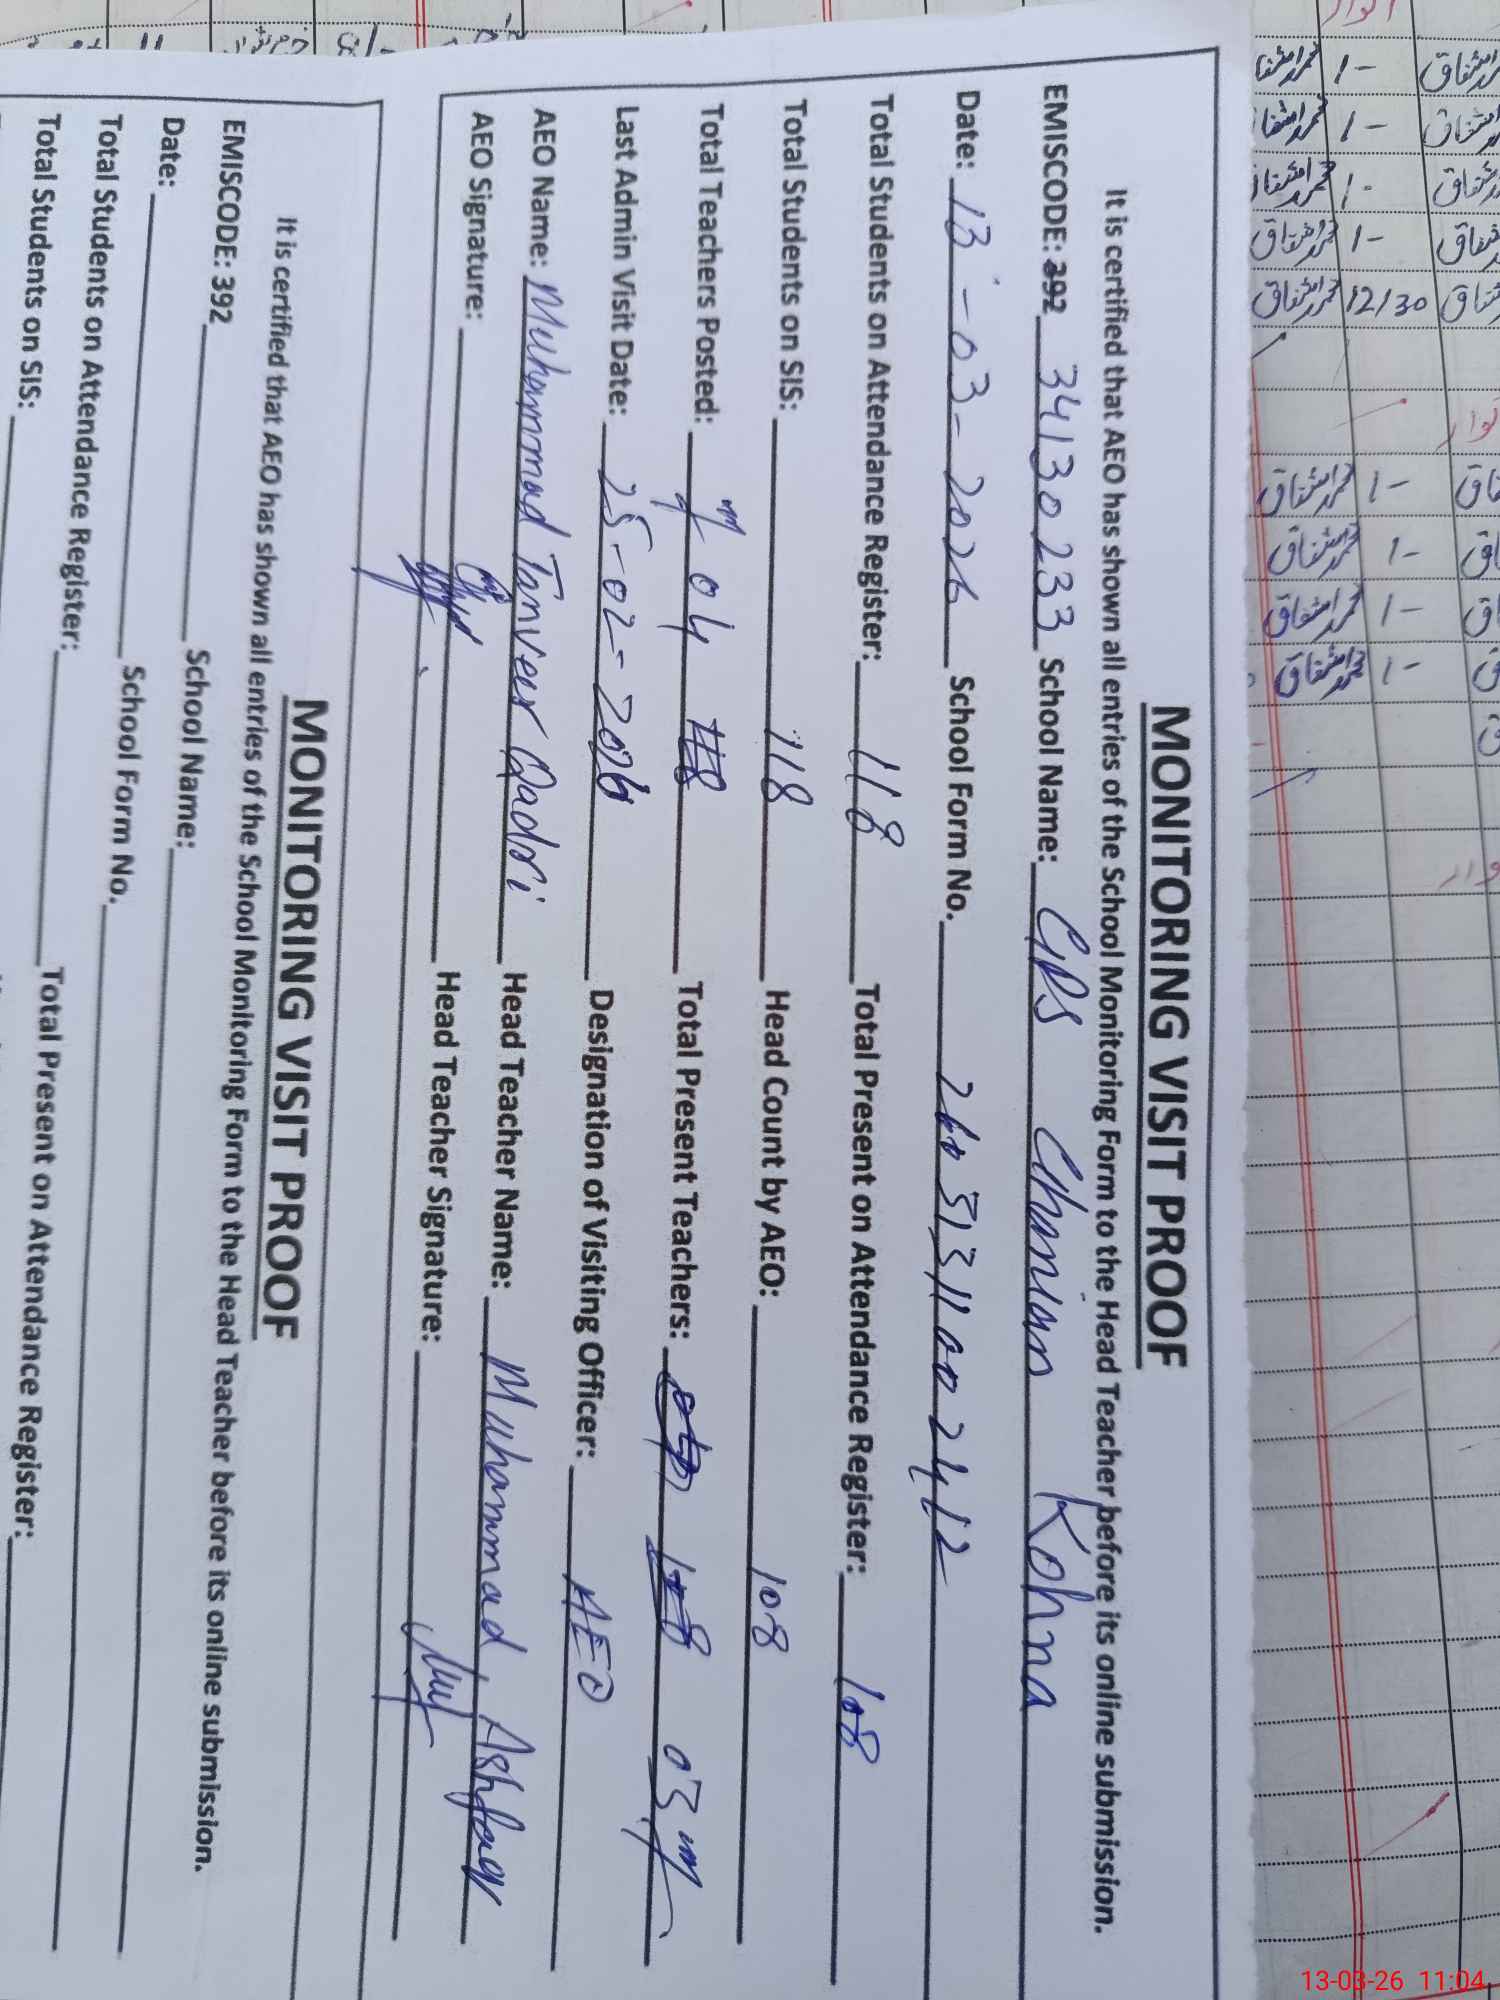 MONITORING VISIT PROOF
It is certified that AEO has shown all entries of the School Monitoring Form to the Head Teacher before its online submission.
EMISCODE: 392 34130233 School Name: GPS Chanian Kohna
Date: 13-03-2026 School Form No. 26031311002412
Total Students on Attendance Register: 118 Total Present on Attendance Register: 108
Total Students on SIS: 118 Head Count by AEO: 108
Total Teachers Posted: 04 118 Total Present Teachers: 108 03
Last Admin Visit Date: 25-02-2026 Designation of Visiting Officer: AEO
AEO Name: Muhammad Tanveer Qadri Head Teacher Name: Muhammad Ashfaq
AEO Signature: Head Teacher Signature:
MONITORING VISIT PROOF
It is certified that AEO has shown all entries of the School Monitoring Form to the Head Teacher before its online submission.
EMISCODE: 392 School Name:
Date: School Form No.
Total Students on Attendance Register: Total Present on Attendance Register:
Total Students on SIS:
محمد اشفاق 1/-
محمد اشفاق 1/-
محمد اشفاق 1/-
محمد اشفاق 1/-
محمد اشفاق 12/30
محمد اشفاق 1/-
محمد اشفاق 1/-
محمد اشفاق 1/-
محمد اشفاق 1/-
13-03-26 11:04